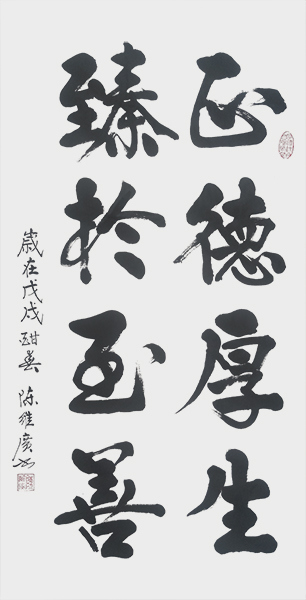 正德厚生
臻於至善
歲在戊戌甜美 陈維廣书